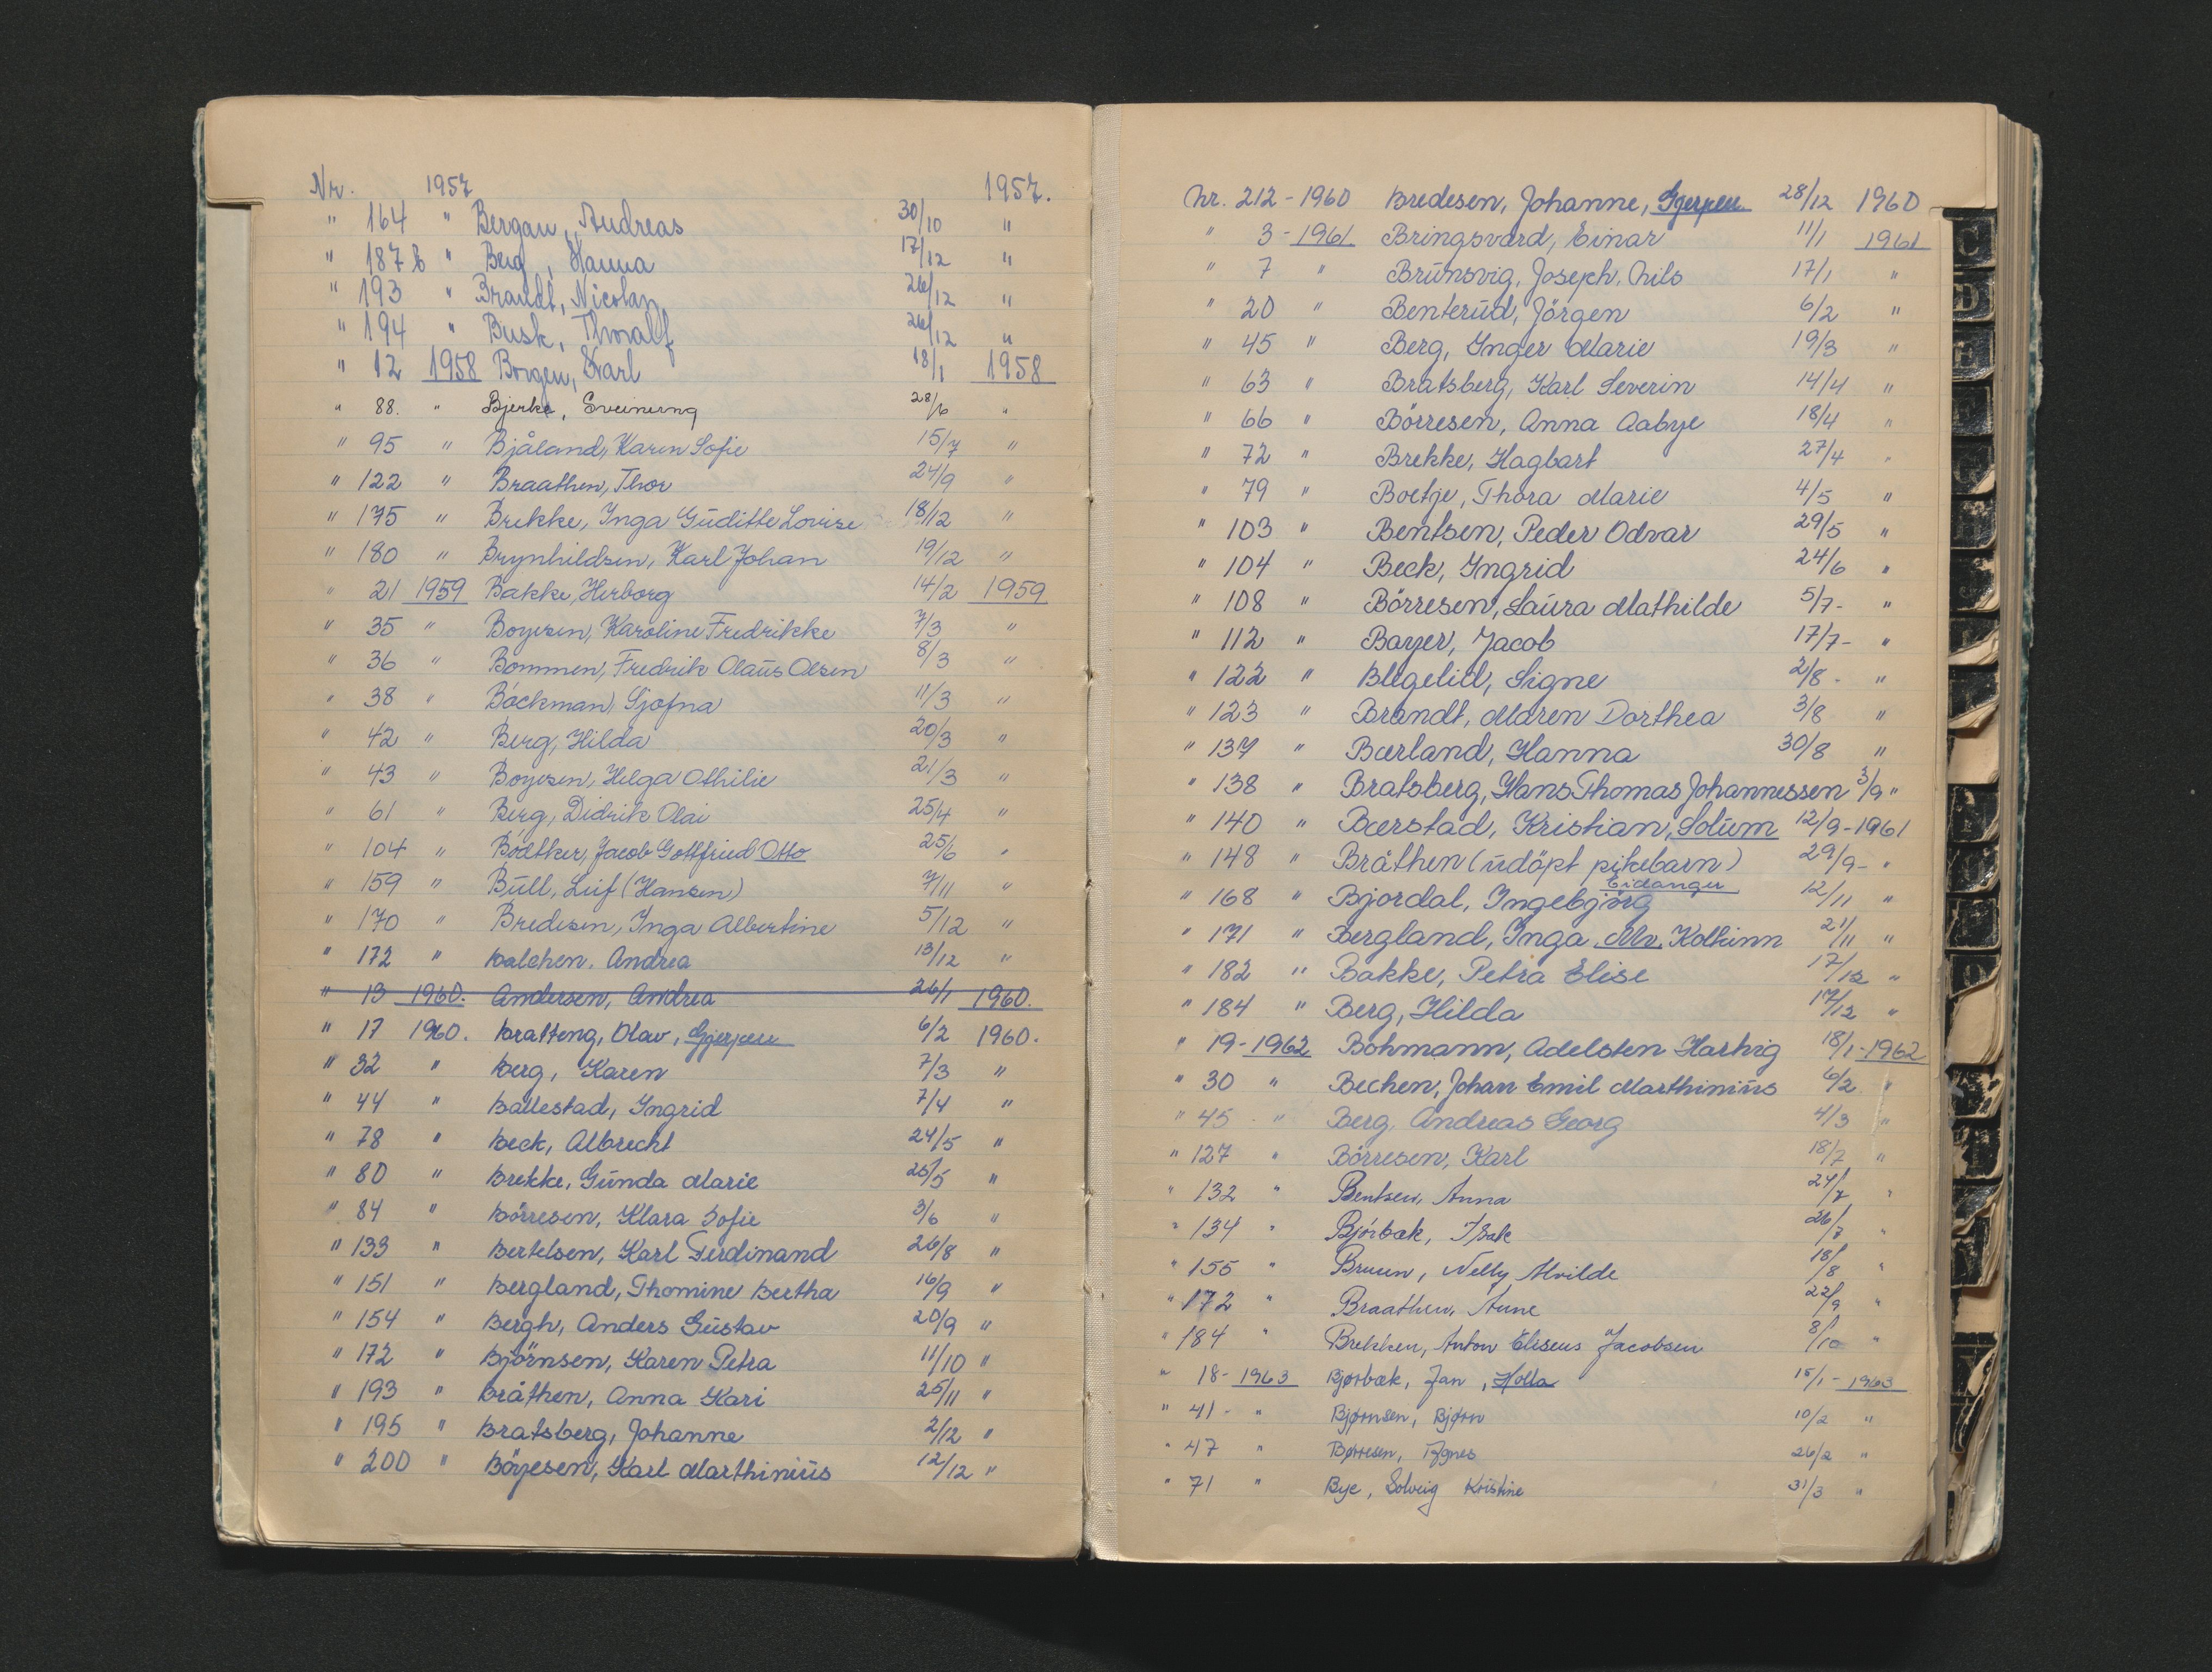 Nr. 1957 1957.
" 164 " Bergan, Andreas 30/10 "
" 187 b " Berg, Hanna 17/12 "
" 193 " Brandt, Nicolay 26/12 "
" 194 " Busk, Thoralf 26/12 "
" 12 1958 Borgen, Karl 18/1 1958
" 88. " Bjerke, Sveinung 28/6 "
" 95 " Bjåland, Karen Sofie 15/7 "
" 122 " Braathen, Thor 24/9 "
" 175 " Brekke, Inga Guditte Lovise 18/12 "
" 180 " Brynhildsen, Karl Johan 19/12 "
" 21 1959 Bakke, Herborg 14/2 1959
" 35 " Boyesen, Karoline Fredrikke 7/3 "
" 36 " Bommen, Fredrik Olaus Olsen 8/3 "
" 38 " Böckman, Sjofna 11/3 "
" 42 " Berg, Hilda 20/3 "
" 43 " Boyesen, Helga Othilie 21/3 "
" 61 " Berg, Didrik Olai 25/4 "
" 104 " Bödtker, Jacob Gottfried Otto 25/6 "
" 159 " Bull, Leif (Hansen) 7/11 "
" 170 " Bredesen, Inga Albertine 5/12 "
" 172 " Balchen. Andrea 13/12 "
" 13 1960. Andersen, Andrea 26/1 1960.
" 17 1960. Bratteng, Olav, Gjerpen 6/2 1960.
" 32 " Berg, Karen 7/3 "
" 44 " Ballestad, Ingrid 7/4 "
" 78 " Beck, Albrecht 24/5 "
" 80 " Brekke, Gunda Marie 25/5 "
" 84 " Börresen, Klara Sofie 3/6 "
" 133 " Bertelsen, Karl Ferdinand 26/8 "
" 151 " Bergland, Thomine Bertha 16/9 "
" 154 " Bergh, Anders Gustav 20/9 "
" 172 " Björnsen, Karen Petra 11/10 "
" 193 " Bråthen, Anna Kari 25/11 "
" 195 " Bratsberg, Johanne 2/12 "
" 200 " Böyesen, Karl Marthinius 12/12 "
Nr. 212 - 1960 Bredesen, Johanne, Gjerpen 28/12 1960
" 3 - 1961 Bringsværd, Einar 11/1 1961
" 7 " Brunsvig, Joseph. Nils 17/1 "
" 20 " Benterud, Jörgen 6/2 "
" 45 " Berg, Inger Marie 19/3 "
" 63 " Bratsberg, Karl Severin 14/4 "
" 66 " Börresen, Anna Aabye 18/4 "
" 72 " Brekke, Hagbart 27/4 "
" 79 " Boetje, Thora Marie 4/5 "
" 103 " Bentsen, Peder Odvar 29/5 "
" 104 " Beck, Ingrid 24/6 "
" 108 " Börresen, Laura Mathilde 5/7- "
" 112 " Bayer, Jacob 17/7- "
" 122 " Blegelid, Signe 2/8 - "
" 123 " Brandt, Maren Dorthea 3/8 "
" 137 " Bærland, Hanna 30/8 "
" 138 " Bratsberg, Hans Thomas Johannessen 3/9 "
" 140 " Bærstad, Kristian, Solum 12/9 - 1961
" 148 " Bråthen (udöpt pikebarn) 29/9 - "
" 168 " Bjordal, Ingebjörg Eidanger 12/11 "
" 171 " Bergland, Inga Mv. Kolkinn 21/11 "
" 182 " Bakke, Petra Elise 17/12 "
" 184 " Berg, Hilda 17/12 "
" 19 - 1962 Bohmann, Adelsten Hartvig 18/1 - 1962
" 30 " Bechen, Johan Emil Marthinius 6/2 "
" 45 " Berg, Andreas Georg 4/3 "
" 127 " Börresen, Karl 18/7 "
" 132 " Bentsen, Anna 24/7 "
" 134 " Bjórbæk, Isak 26/7 "
" 155 " Bruun, Nelly Alvilde 18/8 "
" 172 " Braathen, Anne 22/9 "
" 184 " Brekken, Anton Eliseus Jacobsen 8/10 "
" 18 - 1963 Bjørbæk, Jan, Holla 15/1 - 1963
" 41 - " Bjørnsen, Bjørn 10/2 "
" 47 " Børresen, Agnes 26/2 "
" 71 " Bye, Solveig Kristine 31/3 "
C
D
E